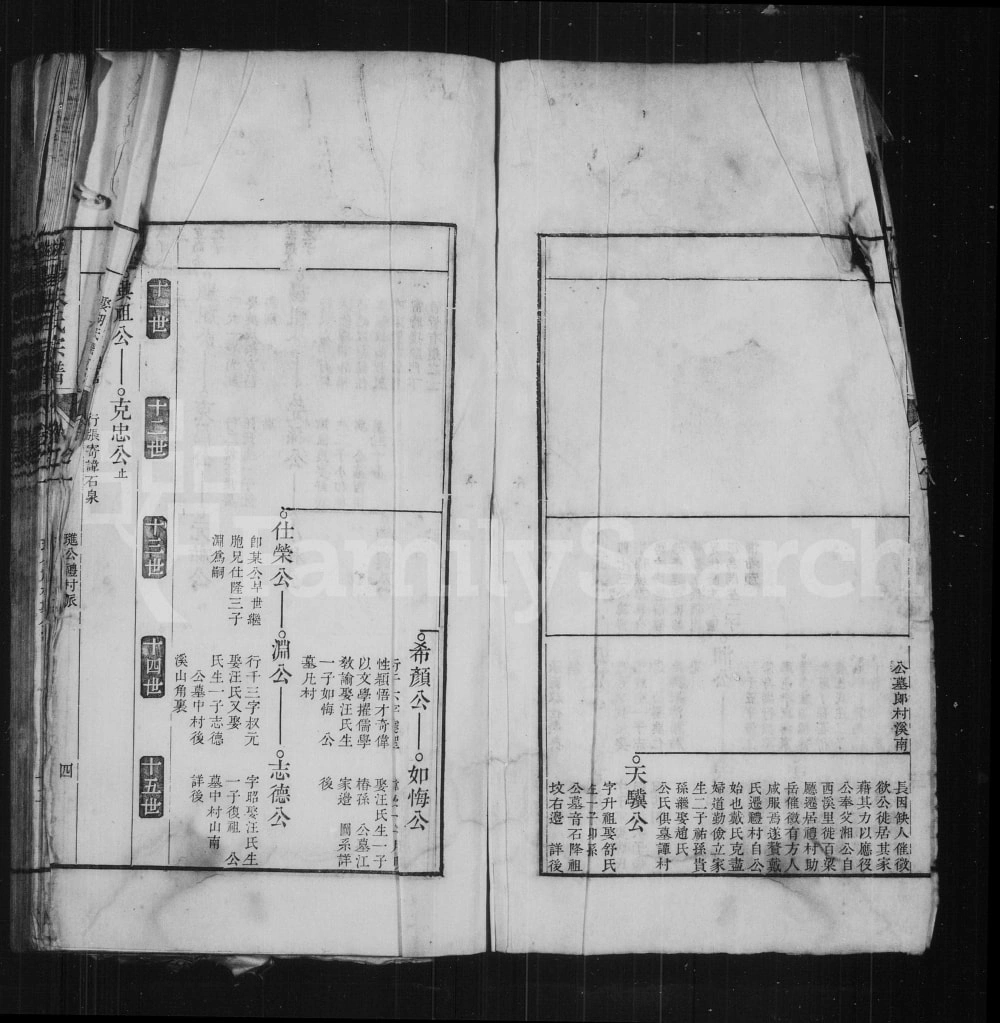 公墓郎村溪南
長因倐人催徵
欲公徙居其家
藉其力以應役
公奉父湘公自
西溪里徙百梁
廳遷居禮村助
岳催徵有方人
咸服焉遂贅戴
氏遷禮村自公
始也戴氏克盡
婦道勤儉立家
生二子祐孫貴
孫繼娶趙氏
公氏俱墓譚村
天驥公
字升祖娶舒氏
生一子卯孫
公墓音石降祖
坟右邊 詳後
希顏公——如悔公
性穎悟才奇偉
以文學擢儒學
教諭娶汪氏生
一子如悔 公
墓凢村
娶汪氏生一子
椿孫 公墓江
家邉 閱系詳
後
仕榮公——淵公——志德公
卽某公早世繼
胞兄仕隆三子
淵爲嗣
行千三字叔元
娶汪氏又娶
氏生一子志德
公墓中村後
溪山角裏
字昭娶汪氏生
一子復祖 公
墓中村山南
詳後
十一世
十二世
十三世
十四世
十五世
興祖公——克忠公止
行張寄諱石泉
氏宗譜
進公禮村派
四
FamilySearch